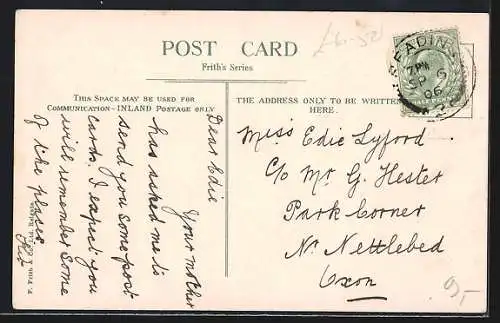 POST CARD
Frith's Series
THIS SPACE MAY BE USED FOR
COMMUNICATION—INLAND POSTAGE ONLY
THE ADDRESS ONLY TO BE WRITTEN
HERE.
Dear Edie
Your mother
has asked me to
send you some post
cards. I expect you
will remember some
of the places
Miss Edie Lyford
C/o Mr G. Hester
Park Corner
Nr Nettlebed
Oxon
READING
7 PM
SP 5
06
9,-